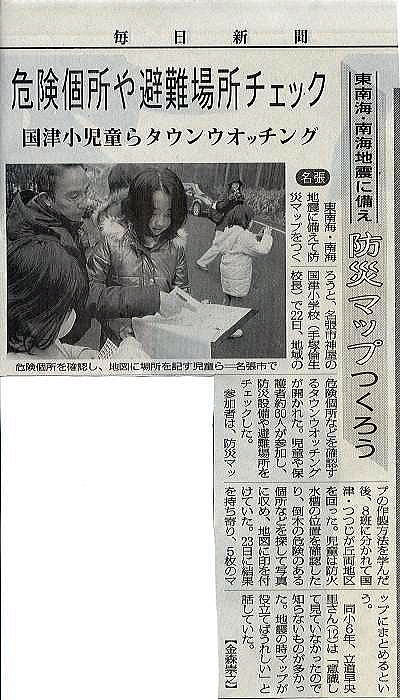 毎日新聞
危険個所や避難場所チェック
国津小児童らタウンウオッチング
東南海・南海地震に備え
防災マップつくろう
名張
東南海・南海
地震に備えて防
災マップをつく
ろうと、名張市神屋の
国津小学校（手塚倫生
校長）で22日、地域の
危険個所などを確認す
るタウンウオッチング
が開かれた。児童や保
護者約60人が参加し、
防災設備や避難場所を
チェックした。
参加者は、防災マッ
プの作製方法を学んだ
後、8班に分かれて国
津・つつじが丘両地区
を回った。児童は防火
水槽の位置を確認した
り、倒木の危険のある
個所などを探して写真
に収め、地図に印を付
けていた。23日に結果
を持ち寄り、5枚のマ
ップにまとめるとい
う。
同小6年、立道早央
里さん(12)は「意識し
て見ていなかったので
知らないものが多かっ
た。地震の時マップが
役立てばうれしい」と
話していた。
【金森崇之】
危険個所を確認し、地図に場所を記す児童ら＝名張市で